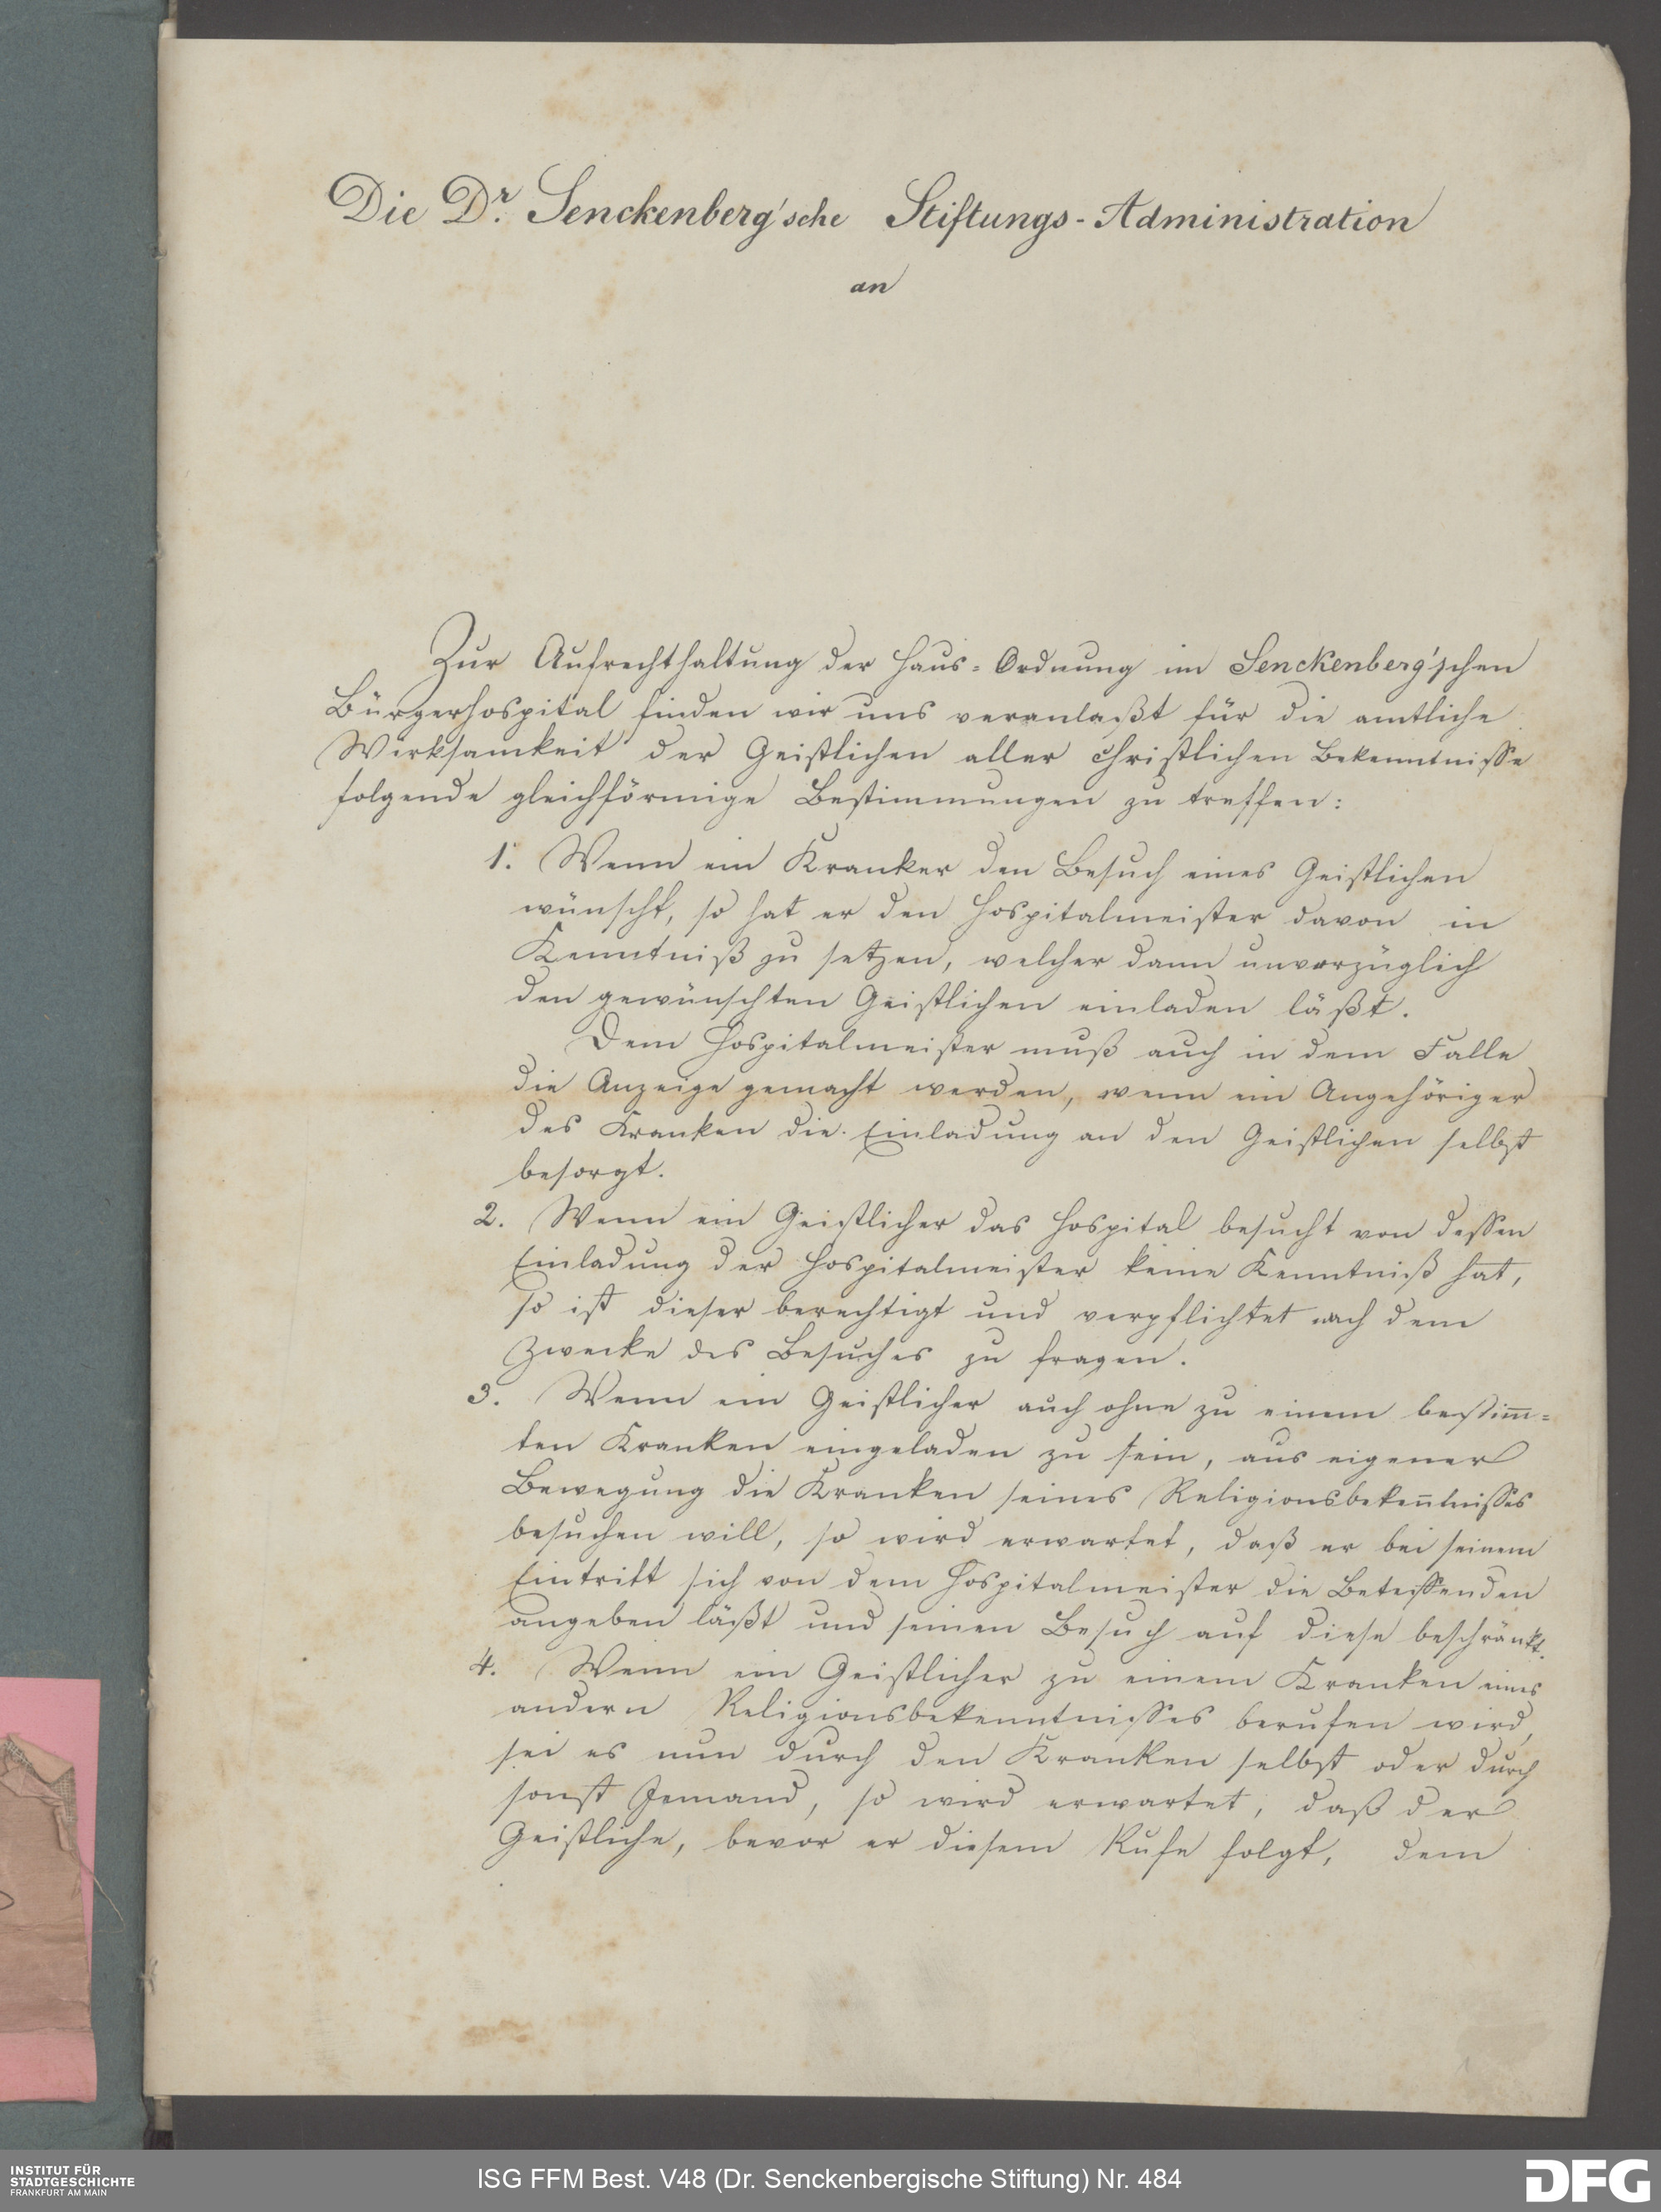 Die Dr. Senckenberg'sche Stiftungs-Administration
an
Zur Aufrechthaltung der Haus-Ordnung im Senckenberg'schen
Bürgerhospital finden wir uns veranlaßt für die amtliche
Wirksamkeit der Geistlichen aller christlichen Bekenntnisse
folgende gleichförmige Bestimmungen zu treffen:
1. Wenn ein Kranker den Besuch eines Geistlichen
wünscht, so hat er den Hospitalmeister davon in
Kenntniß zu setzen, welcher dann unverzüglich
den gewünschten Geistlichen einladen läßt.
Dem Hospitalmeister muß auch in dem Falle
die Anzeige gemacht werden, wenn ein Angehöriger
des Kranken die Einladung an den Geistlichen selbst
besorgt.
2. Wenn ein Geistlicher das Hospital besucht von dessen
Einladung der Hospitalmeister keine Kenntniß hat,
so ist dieser berechtigt und verpflichtet nach dem
Zwecke des Besuches zu fragen.
3. Wenn ein Geistlicher auch ohne zu einem bestim̄=
ten Kranken eingeladen zu sein, aus eigener
Bewegung die Kranken seines Religionsbeken̄tnisses
besuchen will, so wird erwartet, daß er bei seinem
Eintritt sich von dem Hospitalmeister die Betreffenden
angeben läßt und seinen Besuch auf diese beschränkt.
4. Wenn ein Geistlicher zu einem Kranken eines
andern Religionsbekenntnisses berufen wird,
sei es nun durch den Kranken selbst oder durch
sonst Jemand, so wird erwartet, daß der
Geistliche, bevor er diesem Rufe folgt, dem
INSTITUT FÜR
STADTGESCHICHTE
FRANKFURT AM MAIN
ISG FFM Best. V48 (Dr. Senckenbergische Stiftung) Nr. 484
DFG